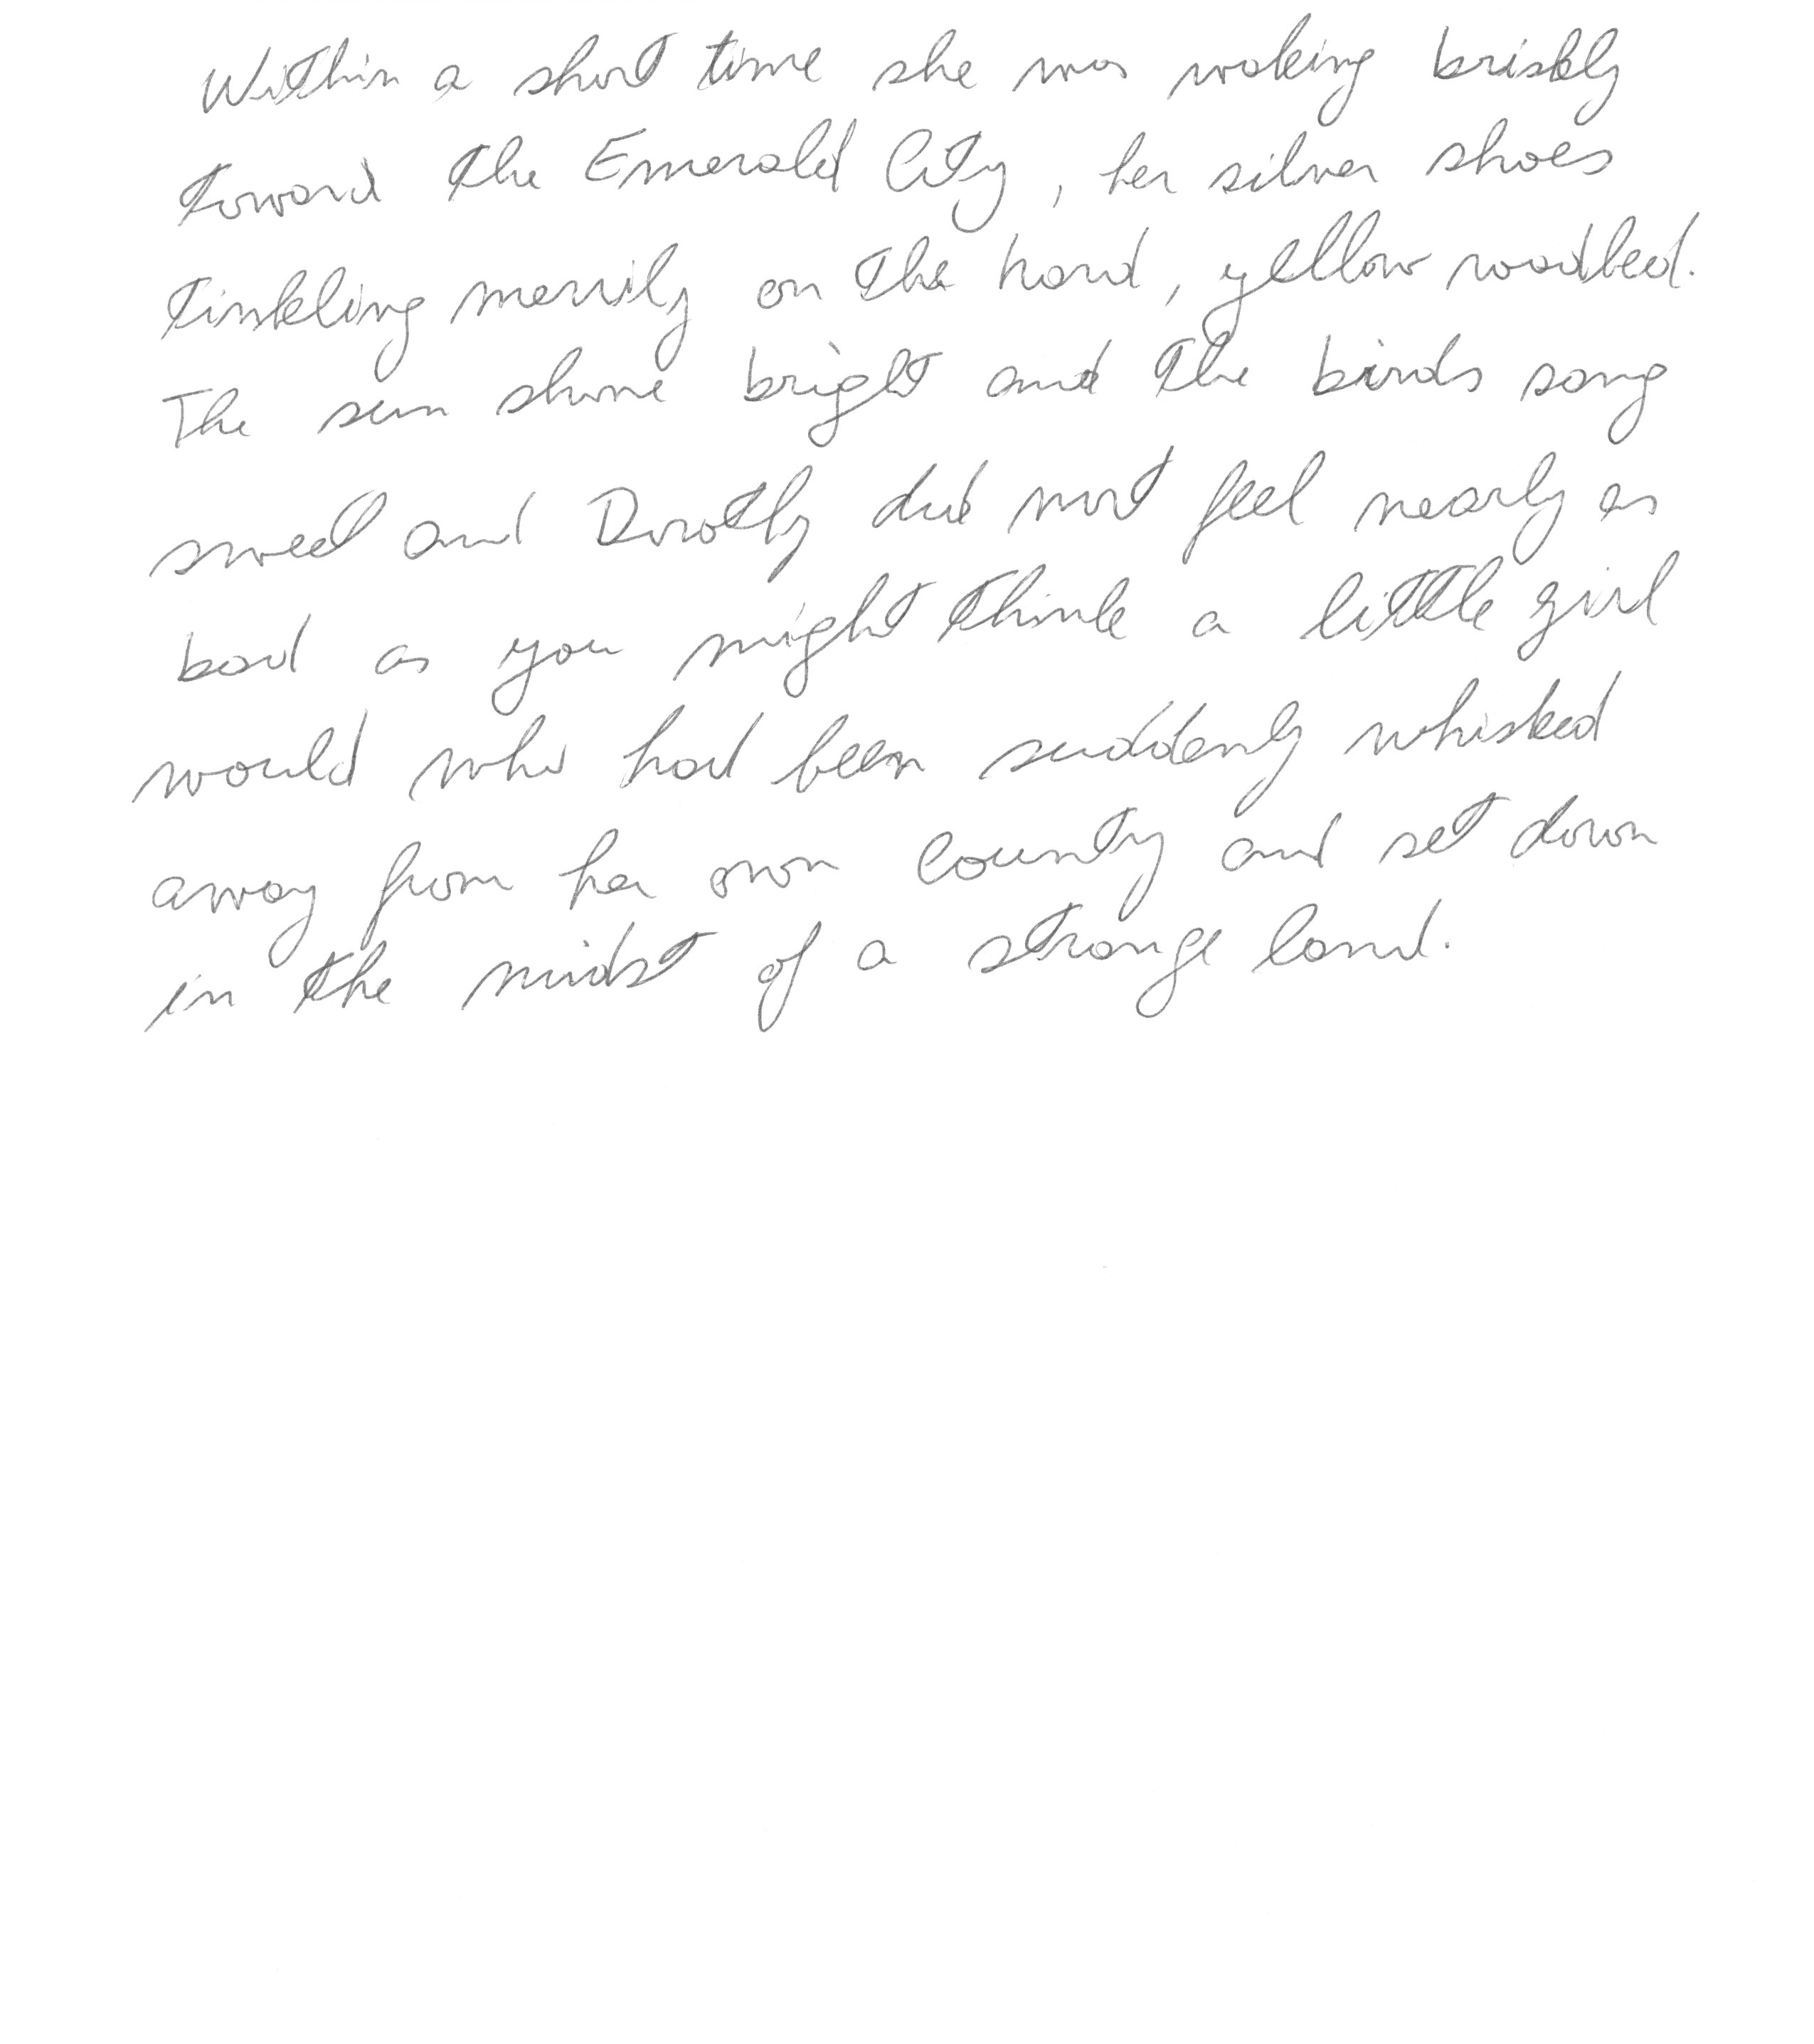 Within a short time she was waking briskly
toward the Emerald City, her silver shoes
tinkling merrily on the hard, yellow roadbed.
The sun shone bright and the birds sang
sweet and Dorothy did not feel nearly as
bad as you might think a little girl
would who had been suddenly whisked
away from her own county and set down
in the midst of a strange land.